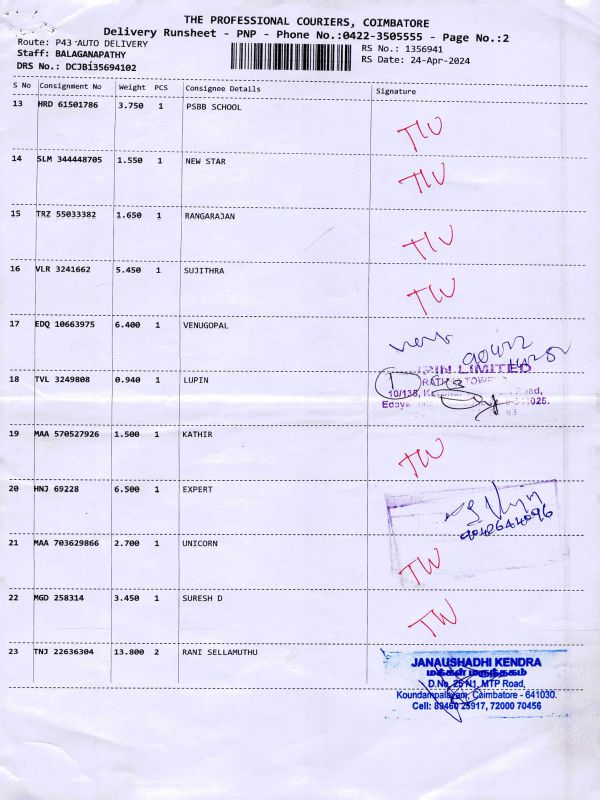 THE PROFESSIONAL COURIERS, COIMBATORE
Delivery Runsheet - PNP - Phone No.:0422-3505555 - Page No.:2
Route: P43 -AUTO DELIVERY
RS No.: 1356941
Staff: BALAGANAPATHY
RS Date: 24-Apr-2024
DRS No.: DCJBI35694102
S No Consignment No Weight PCS Consignee Details Signature
13 HRD 61501786 3.750 1 PSBB SCHOOL
TW
14 SLM 344448705 1.550 1 NEW STAR
TW
15 TRZ 55033382 1.650 1 RANGARAJAN
TW
16 VLR 3241662 5.450 1 SUJITHRA
TW
17 EDQ 10663975 6.400 1 VENUGOPAL
18 TVL 3249808 0.940 1 LUPIN
LIMITED
10/138,
Road,
19 MAA 570527926 1.500 1 KATHIR
TW
20 HNJ 69228 6.500 1 EXPERT
21 MAA 703629866 2.700 1 UNICORN
TW
22 MGD 258314 3.450 1 SURESH D
TW
23 TNJ 22636304 13.800 2 RANI SELLAMUTHU
JANAUSHADHI KENDRA
மக்கள் மருந்தகம்
D.No. 25 N1, MTP Road,
Koundampalayam, Coimbatore - 641030.
Cell: 89460 25917, 72000 70456